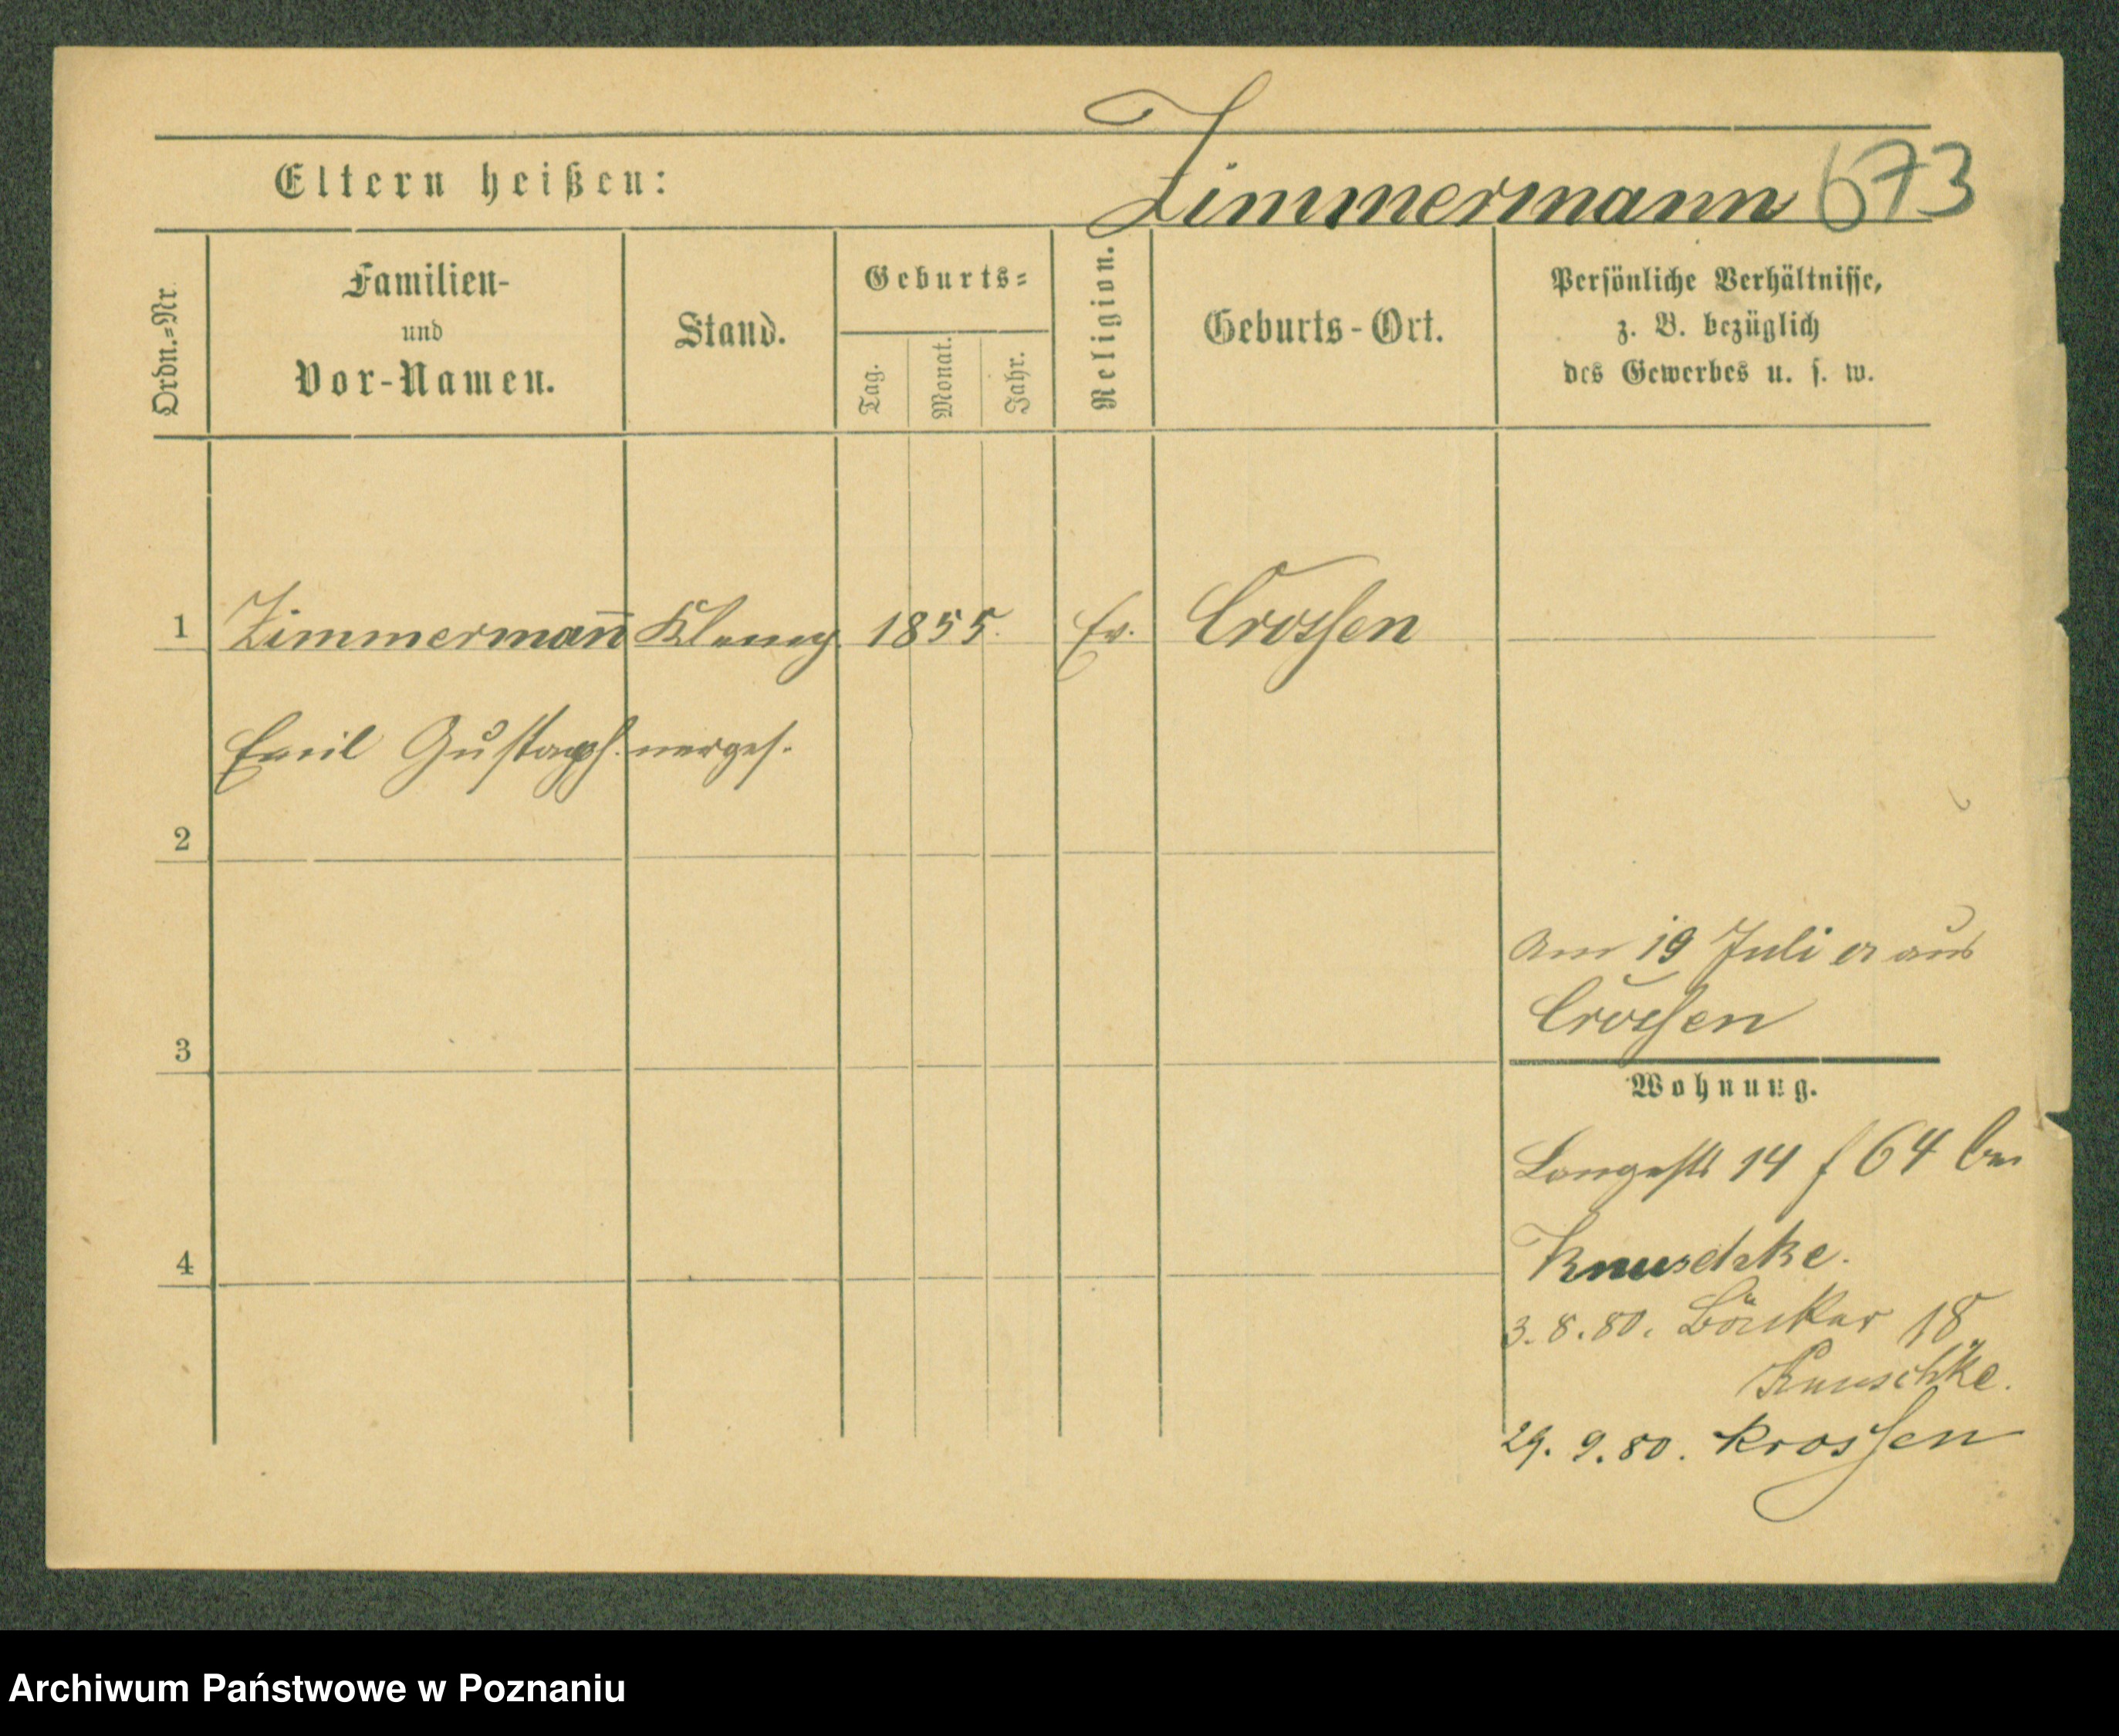 Zimmermann 673
Eltern heißen:
Ordn.=Nr.
Familien-
und
Vor-Namen.
Stand.
Geburts=
Tag.
Monat.
Jahr.
Religion.
Geburts-Ort.
Persönliche Verhältnisse,
z. B. bezüglich
des Gewerbes u. s. w.
1 Zimmermañ Klemp 1855. Ev. Crossen
Emil Gustaph. nerges.
2
Am 19 Juli er aus
Crossen
3
Wohnung.
Langestr 14 f 64 bei
4
Knuschke.
3. 8. 80. 18
Knuschke.
29. 9. 80. Krossen
Archiwum Państwowe w Poznaniu